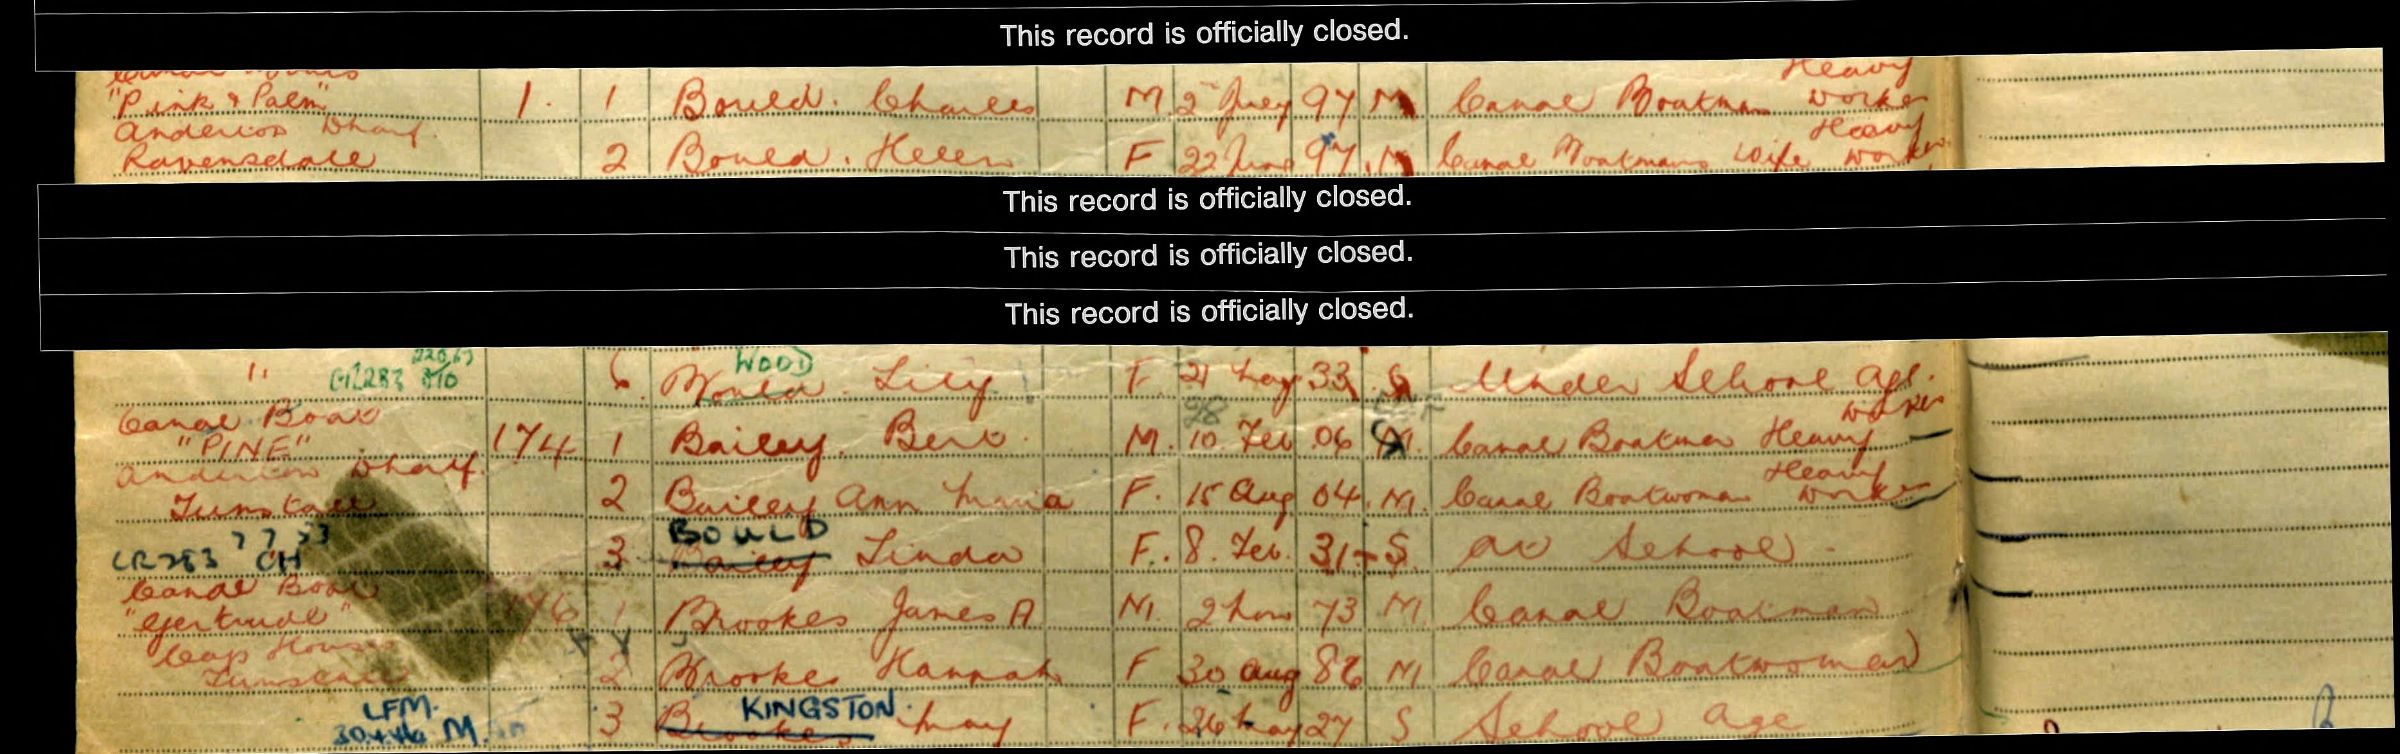 This record is officially closed.
"Pink & Palm" 1. 1 Bould. Charles M 2 July 97 M Canal Boatman Heavy Worker
Anderton Wharf.
Ravensdale 2 Bould. Helen F 22 June 97. M Canal Boatmans Wife Heavy Worker
This record is officially closed.
This record is officially closed.
This record is officially closed.
WOOD
" 6. Bould. Lily F. 21 May 33 S Under School Age.
Canal Boat
"PINE" 174 1 Bailey. Bert. M. 10. Feb 06 M. Canal Boatman Heavy Worker
Anderton Wharf.
Tunstall 2 Bailey Ann Maria F. 15 Aug 04. M. Canal Boatwoman Heavy Worker
BOULD
CR283 7 7 53 CH 3 Bailey Linda F. 8. Feb. 31 S. At School
Canal Boat
"Gertrude" 176 1 Brookes James A M. 2 Nov 73 M. Canal Boatman
Cap House
Tunstall 2 Brookes Hannah F 30 Aug 86 M Canal Boatwoman
LFM. KINGSTON.
30.4.46 M. 3 Brookes May F. 26 May 27 S School Age